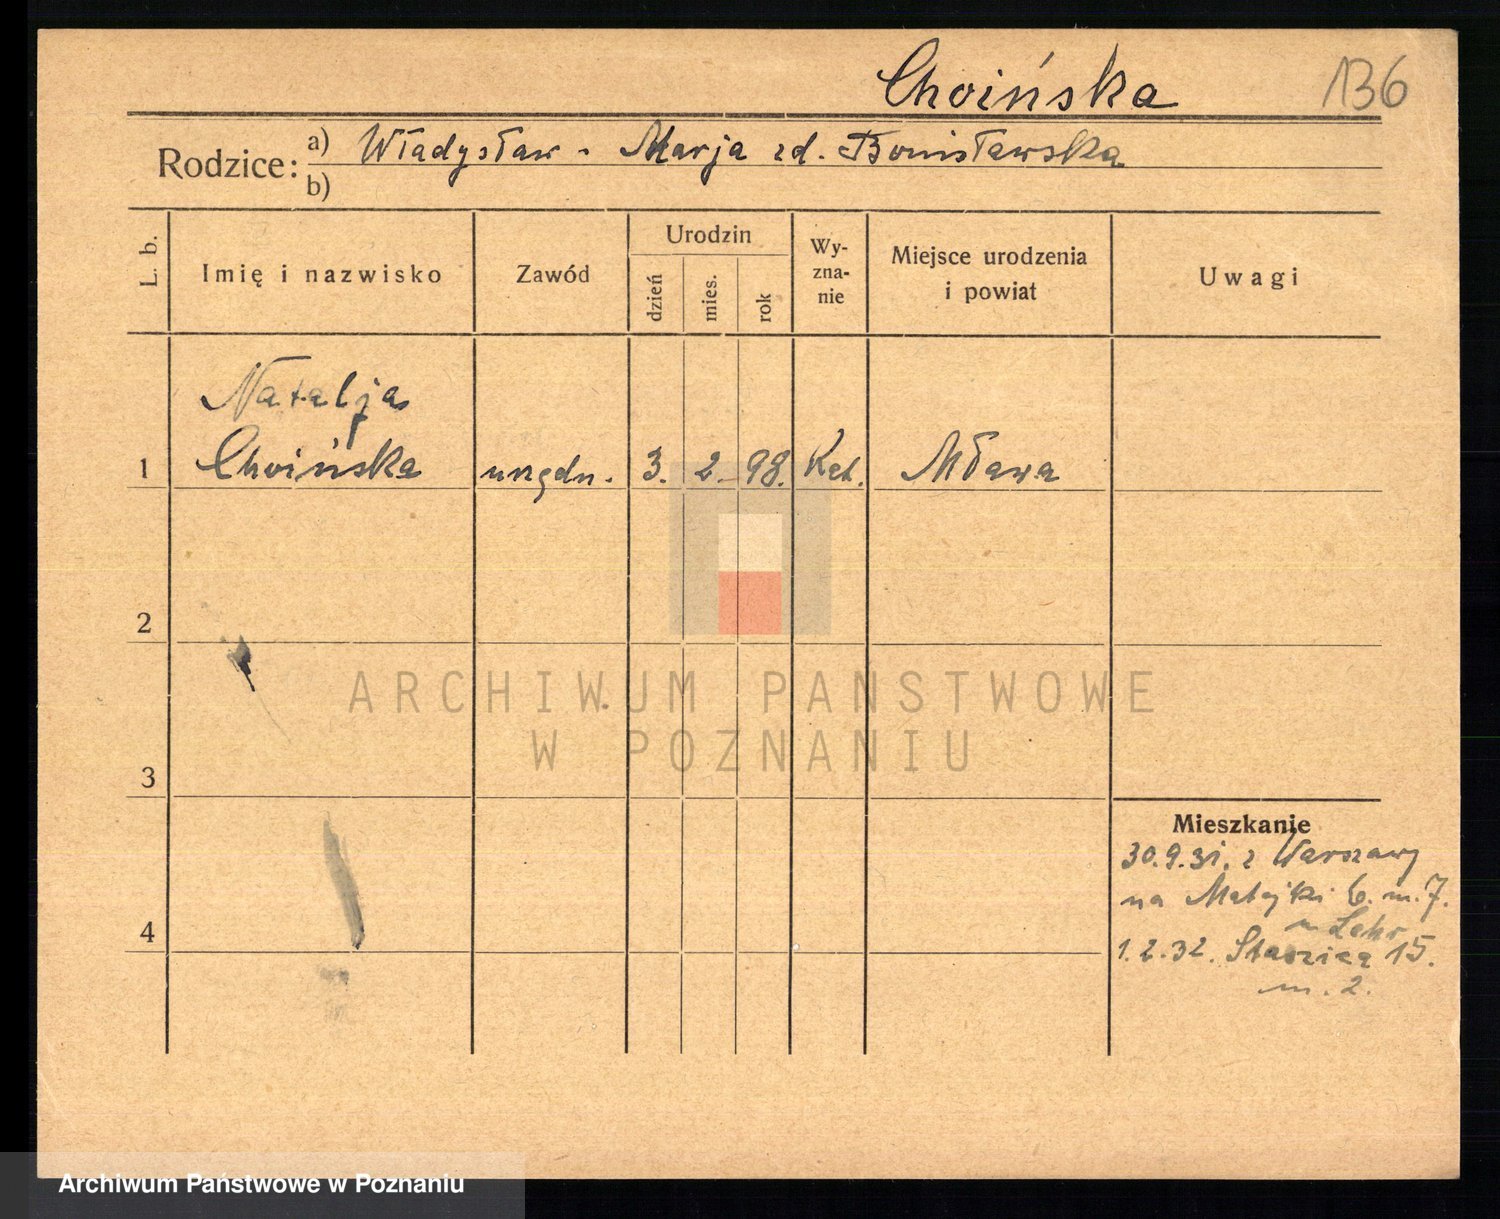 Choińska 136
Rodzice: a) Władysław - Marja zd. Bonisławska
b)
L. b. Imię i nazwisko Zawód Urodzin dzień mies. rok Wy-zna-nie Miejsce urodzenia i powiat Uwagi
Natalja
1 Choińska urzędn. 3. 2. 98. Kat. Mława
2
ARCHIWUM PAŃSTWOWE
W POZNANIU
3
Mieszkanie
30.9.31. z Warszawy
na Matejki 6. m. 7.
u Lehr
4 1.2.32. Staszica 15.
m. 2.
Archiwum Państwowe w Poznaniu